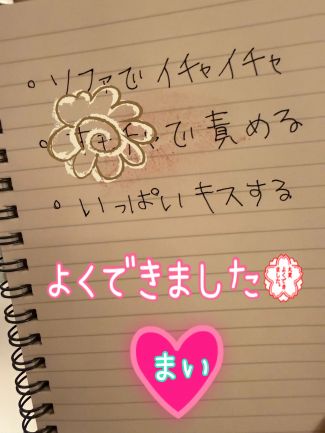 。ソファでイチャイチャ
で責める
。いっぱいキスする
よくできました
まい